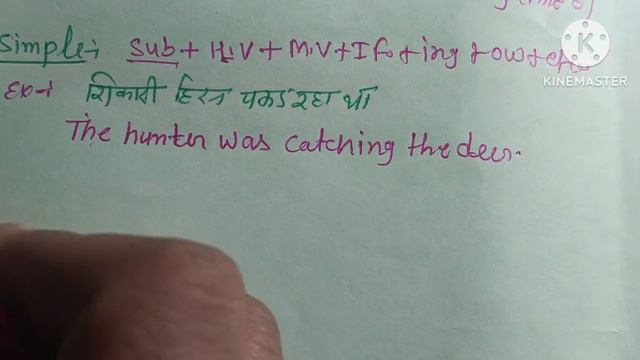 Simple:- Sub + H.V + M.V + I fo + ing + ow + etc
Ex-: शिकारी हिरन पकड़ रहा था
The hunter was catching the deer.
KINEMASTER